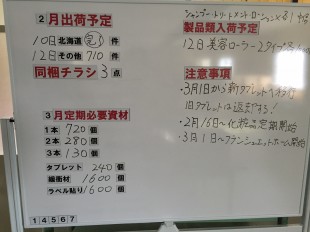 2月出荷予定
10日北海道 件
12日その他 710 件
同梱チラシ 3点
3月定期必要資材
1本 720 個
2本 280 個
3本 130 個
タブレット 240 個
緩衝材 1600 個
ラベル貼り 1600 個
1 4 5 6 7
シャンプー・トリートメント・ローション
製品類入荷予定
12日 美容ローラー 2タイプ
注意事項
・3月1日から新タブレット
旧タブレットは返品する!
・2月16日〜化粧品定期開始
・3月1日〜 開始